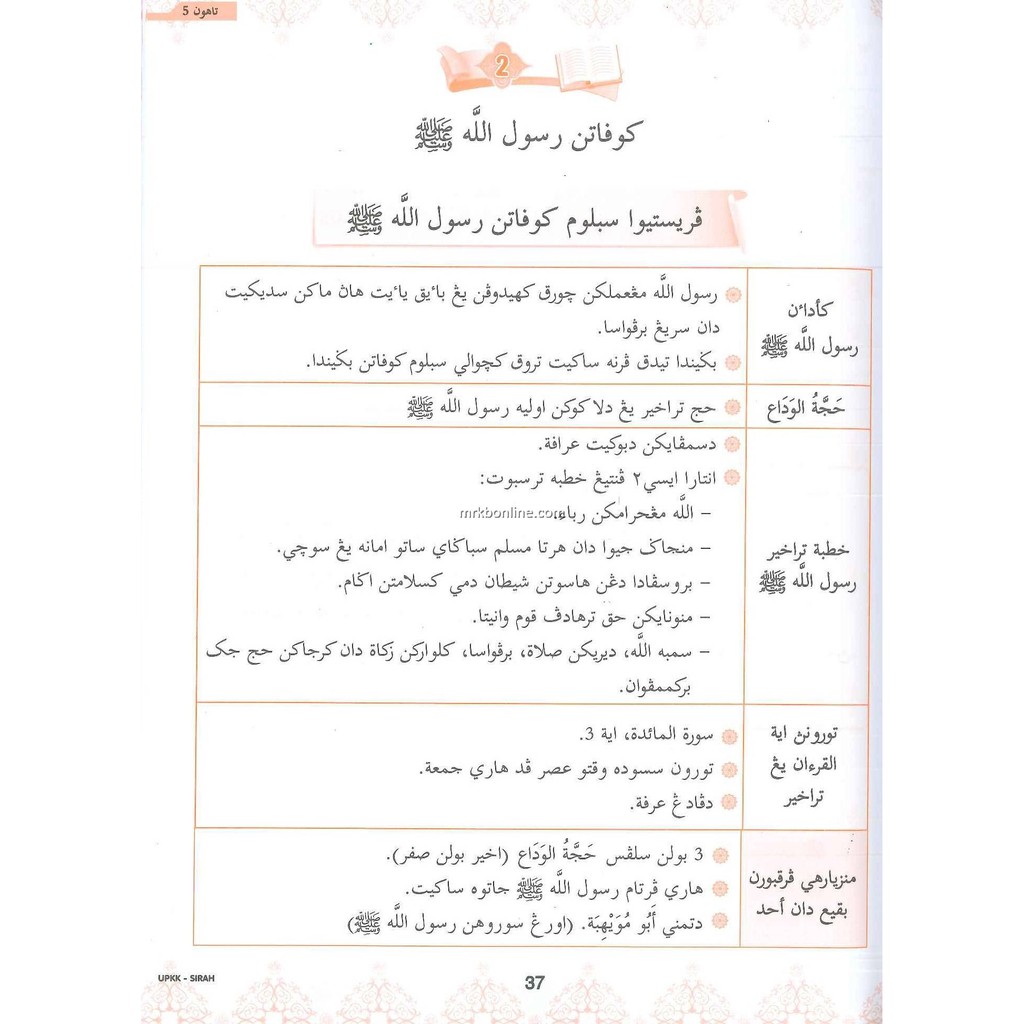 تاهون 5
2
كوفاتن رسول اللَّه ﷺ
ڤريستيوا سبلوم كوفاتن رسول اللَّه ﷺ
كأداءن
رسول اللَّه ﷺ
رسول اللَّه مڠعملكن چورق كهيدوڤن يڠ باءيق ياءيت هاڽ ماكن سديكيت
دان سريڠ برڤواسا.
بݢيندا تيدق ڤرنه ساكيت تروق كچوالي سبلوم كوفاتن بݢيندا.
حَجَّةُ الوَدَاع
حج تراخير يڠ دلاكوكن اوليه رسول اللَّه ﷺ
خطبة تراخير
رسول اللَّه ﷺ
دسمڤايكن دبوكيت عرافة.
انتارا ايسي٢ ڤنتيڠ خطبه ترسبوت:
– اللَّه مڠحرامكن رباء.
mrkbonline.com
– منجاݢ جيوا دان هرتا مسلم سباݢاي ساتو امانه يڠ سوچي.
– بروسڤادا دڠن هاسوتن شيطان دمي كسلامتن اݢام.
– منونايكن حق ترهادڤ قوم وانيتا.
– سمبه اللَّه، ديريكن صلاة، برڤواسا، كلواركن زكاة دان كرجاكن حج جک
بركممڤوان.
تورونڽ اية
القرءان يڠ
تراخير
سورة المائدة، اية 3.
تورون سسوده وقتو عصر ڤد هاري جمعة.
دڤادڠ عرفة.
منزيارهي ڤرقبورن
بقيع دان أحد
3 بولن سلڤس حَجَّةُ الوَدَاع (اخير بولن صفر).
هاري ڤرتام رسول اللَّه ﷺ جاتوه ساكيت.
دتمني أَبُو مُوَيْهِبَة. (اورڠ سوروهن رسول اللَّه ﷺ)
UPKK - SIRAH
37